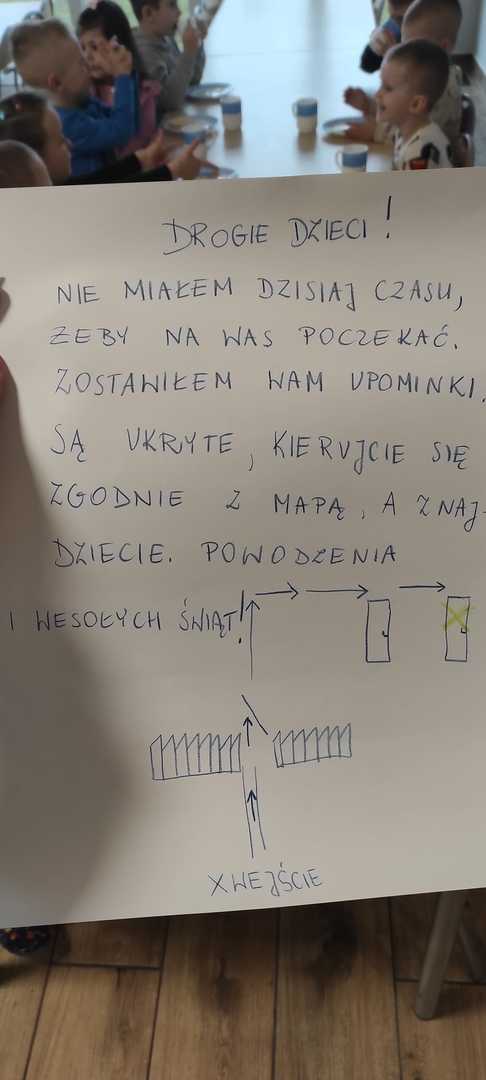 DROGIE DZIECI!
NIE MIAŁEM DZISIAJ CZASU,
ŻEBY NA WAS POCZEKAĆ.
ZOSTAWIŁEM WAM UPOMINKI.
SĄ UKRYTE, KIERUJCIE SIĘ
ZGODNIE Z MAPĄ, A ZNAJ-
DZIECIE. POWODZENIA
I WESOŁYCH ŚWIĄT!
X WEJŚCIE